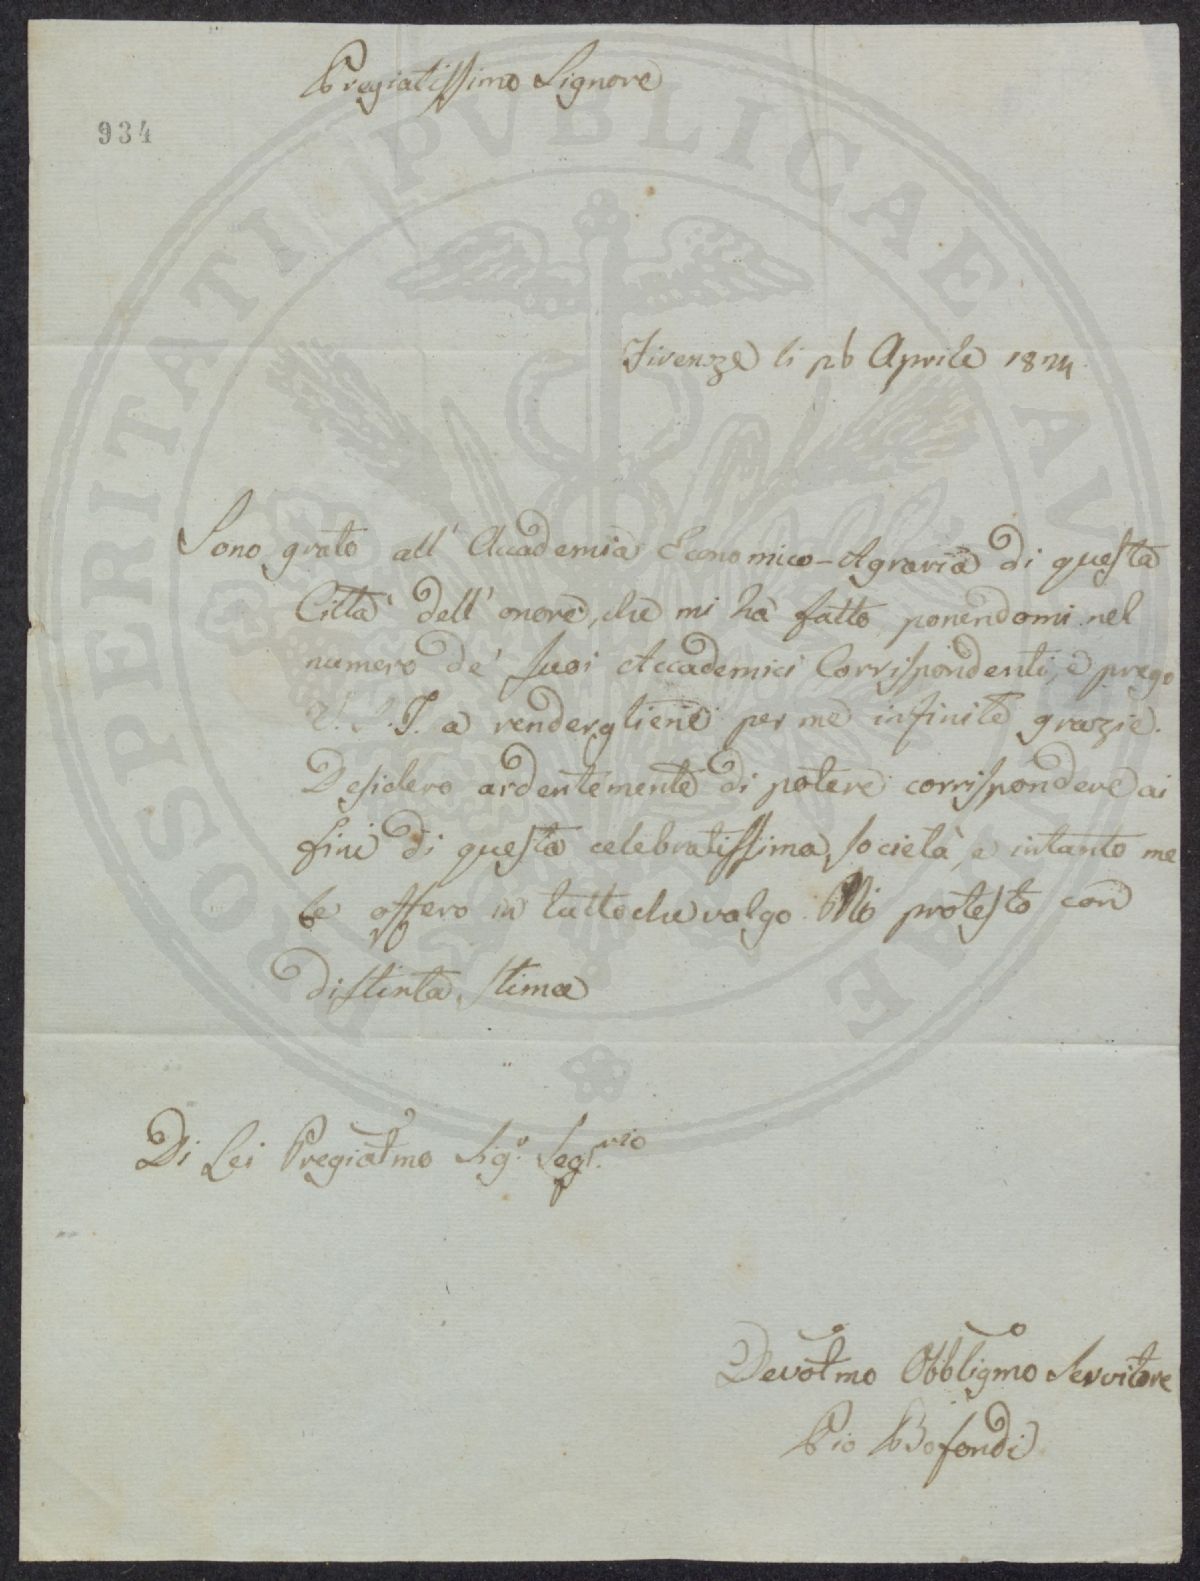 Pregiatissimo Signore
934
Firenze li 26 Aprile 1824
Sono grato all' Accademia Economico-Agraria di questa
Città dell' onore, che mi hà fatto ponendomi nel
numero de' suoi Accademici Corrispondenti, e prego
V. S. I. a renderglienè per me infinite grazie.
Desidero ardentemente di potere corrispondere ai
fini di questa celebratissima società, e intanto me
le offero in tutto che valgo. Mi protesto con
distinta stima
Di Lei Pregiatmo Sig.e Segr.rio
Devotmo Obbligmo Servitore
Pio Bofondi
PROSPERITATI PVBLICAE AVGENDAE